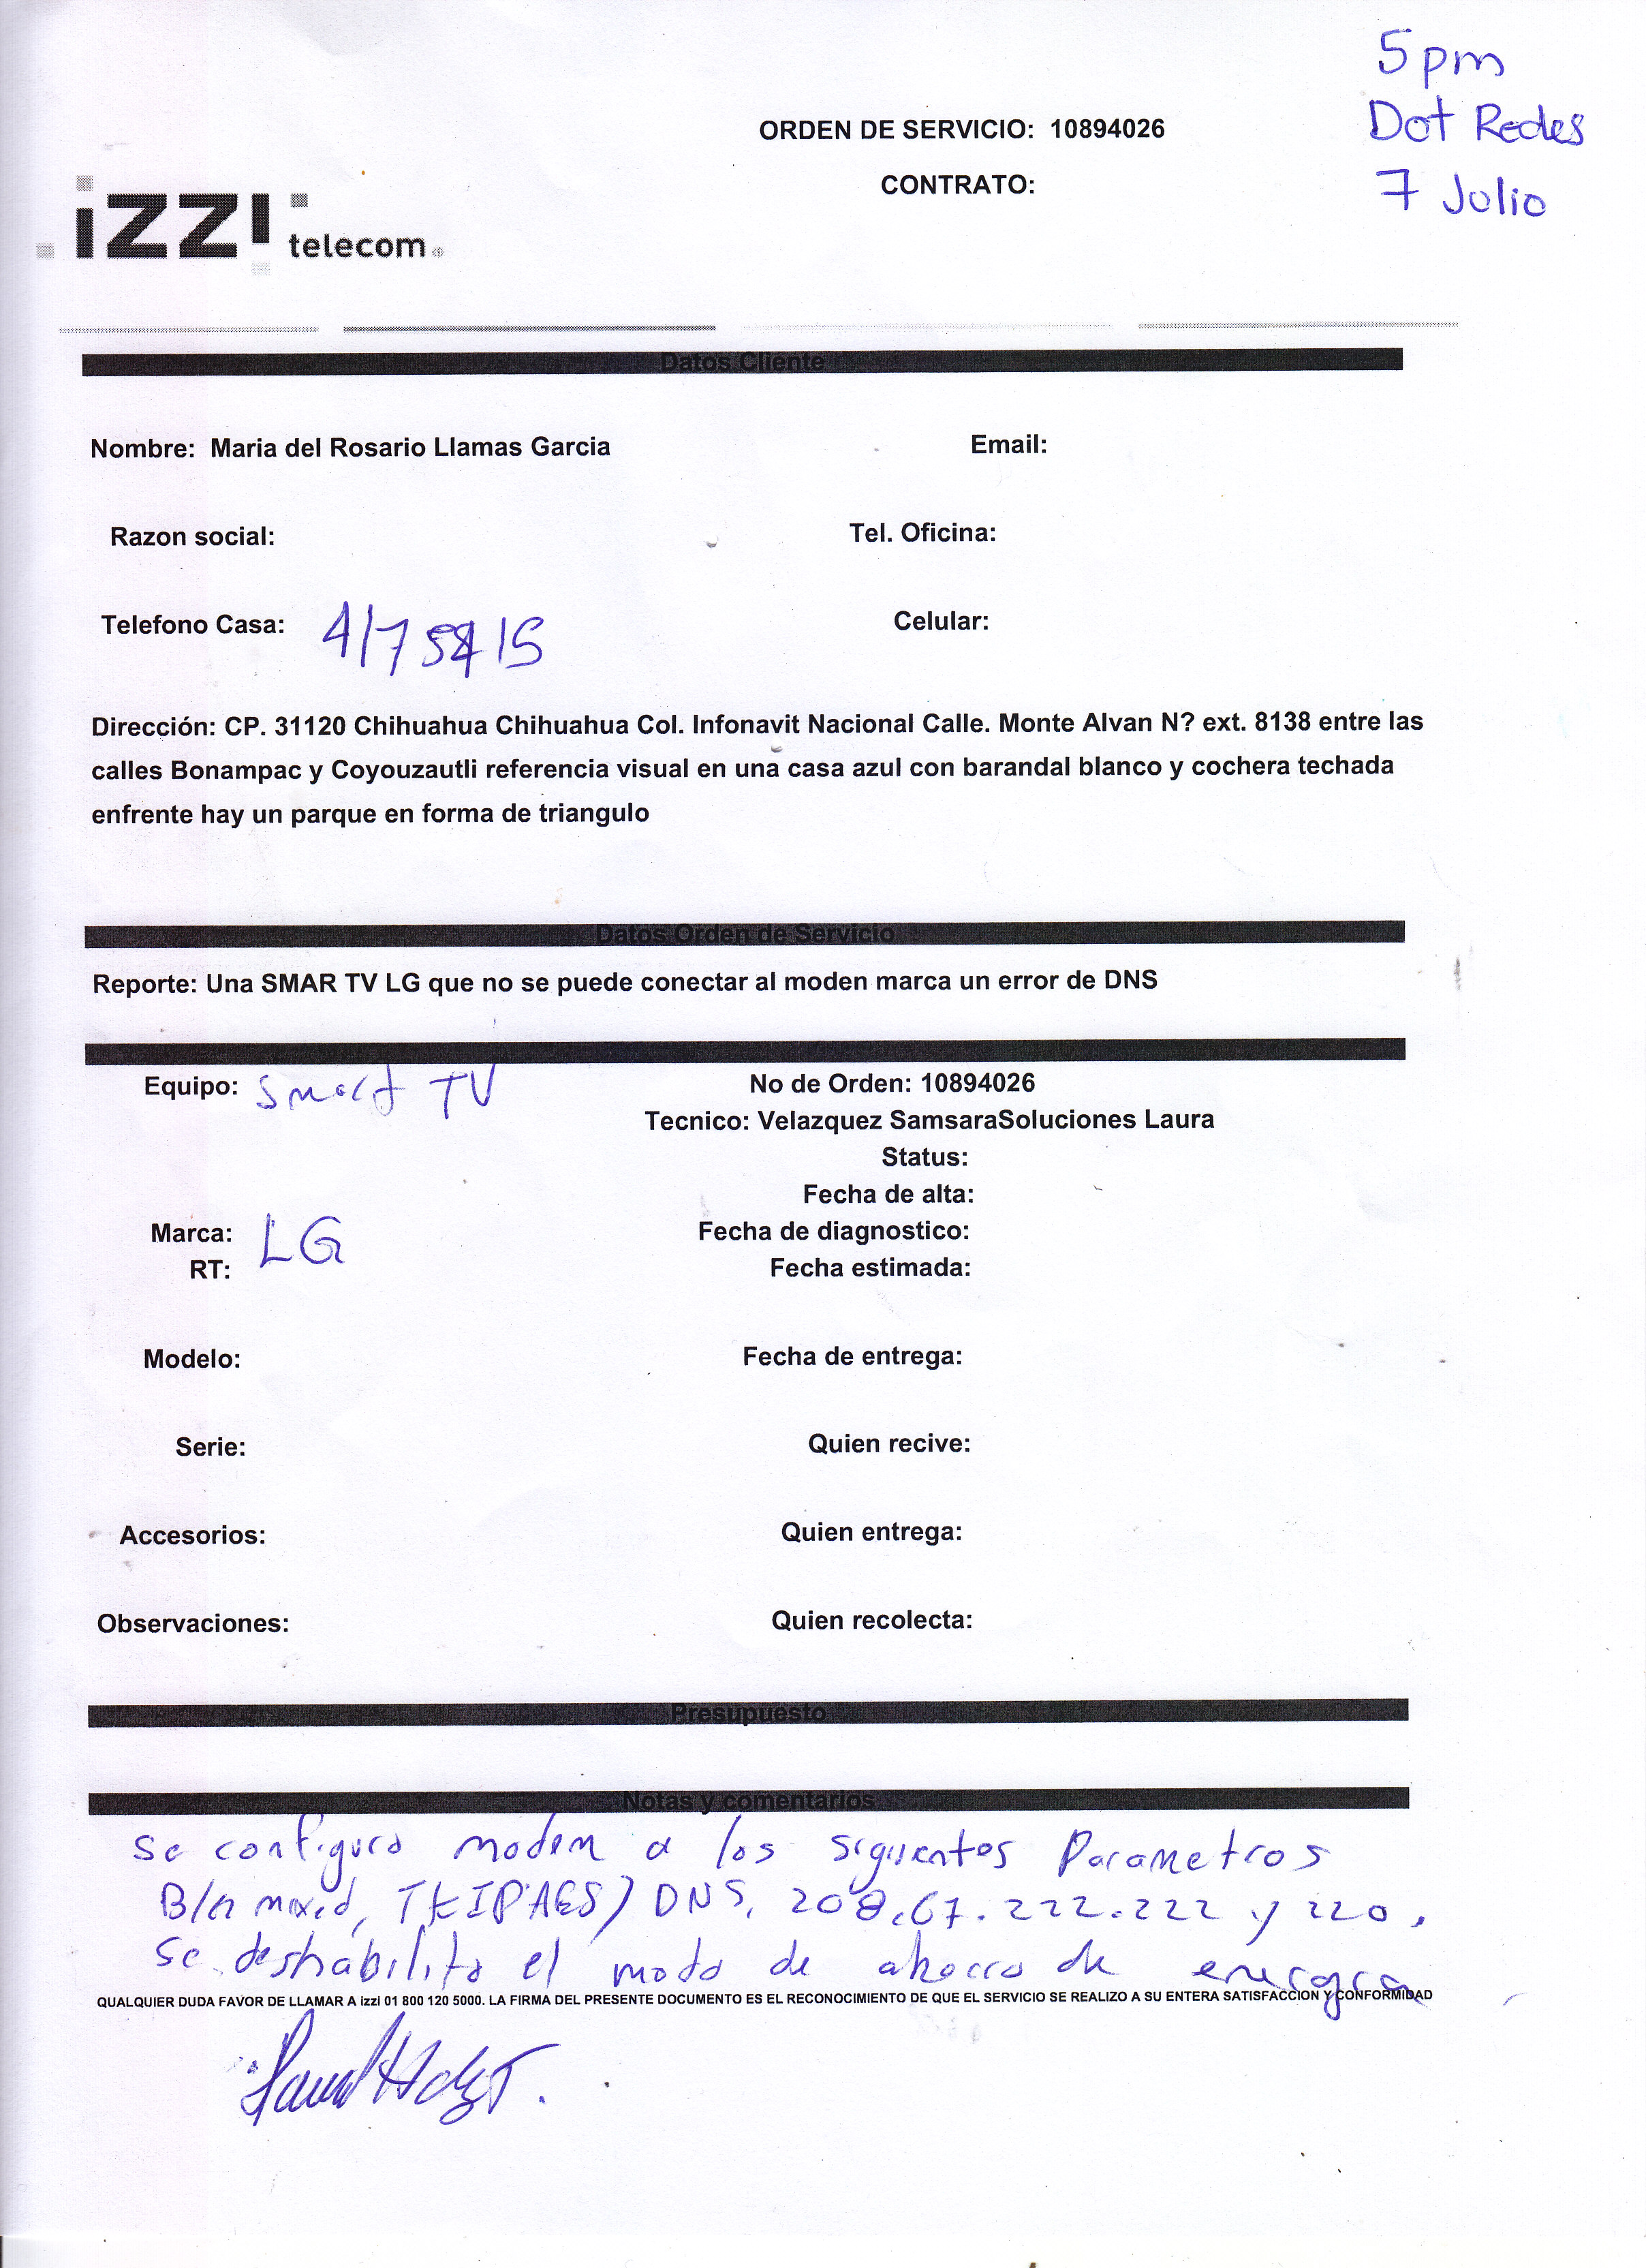 5 pm
Dot Redes
7 Julio
ORDEN DE SERVICIO: 10894026
CONTRATO:
izzi telecom
Datos Cliente
Nombre: Maria del Rosario Llamas Garcia Email:
Razon social: Tel. Oficina:
Telefono Casa: Celular:
Dirección: CP. 31120 Chihuahua Chihuahua Col. Infonavit Nacional Calle. Monte Alvan N? ext. 8138 entre las
calles Bonampac y Coyouzautli referencia visual en una casa azul con barandal blanco y cochera techada
enfrente hay un parque en forma de triangulo
Datos Orden de Servicio
Reporte: Una SMAR TV LG que no se puede conectar al moden marca un error de DNS
Equipo: Smart TV No de Orden: 10894026
Tecnico: Velazquez SamsaraSoluciones Laura
Status:
Fecha de alta:
Marca: LG Fecha de diagnostico:
RT: Fecha estimada:
Modelo: Fecha de entrega:
Serie: Quien recive:
Accesorios: Quien entrega:
Observaciones: Quien recolecta:
Presupuesto
Notas y comentarios
Se configuro modem a los siguientes Parametros
B/G mixed, TKIP(AES) DNS, 208.67.222.222 y 220,
se deshabilito el modo de ahorro de energia
QUALQUIER DUDA FAVOR DE LLAMAR A izzi 01 800 120 5000. LA FIRMA DEL PRESENTE DOCUMENTO ES EL RECONOCIMIENTO DE QUE EL SERVICIO SE REALIZO A SU ENTERA SATISFACCION Y CONFORMIDAD